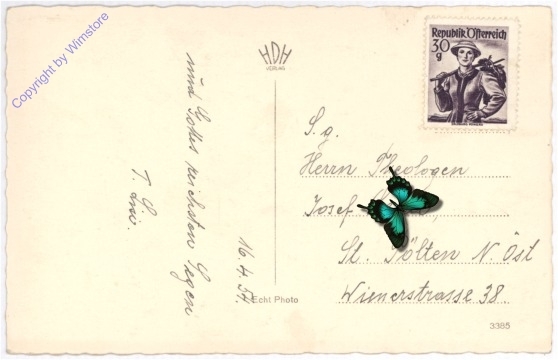 Copyright by Wimstore
und Gottes reichsten Segen
16.4.54
HDH
VERLAG
Echt Photo
Republik Österreich
30
g
S.g.
Herrn Theologen
Josef
St. Pölten N. Öst
Wienerstrasse 38.
3385